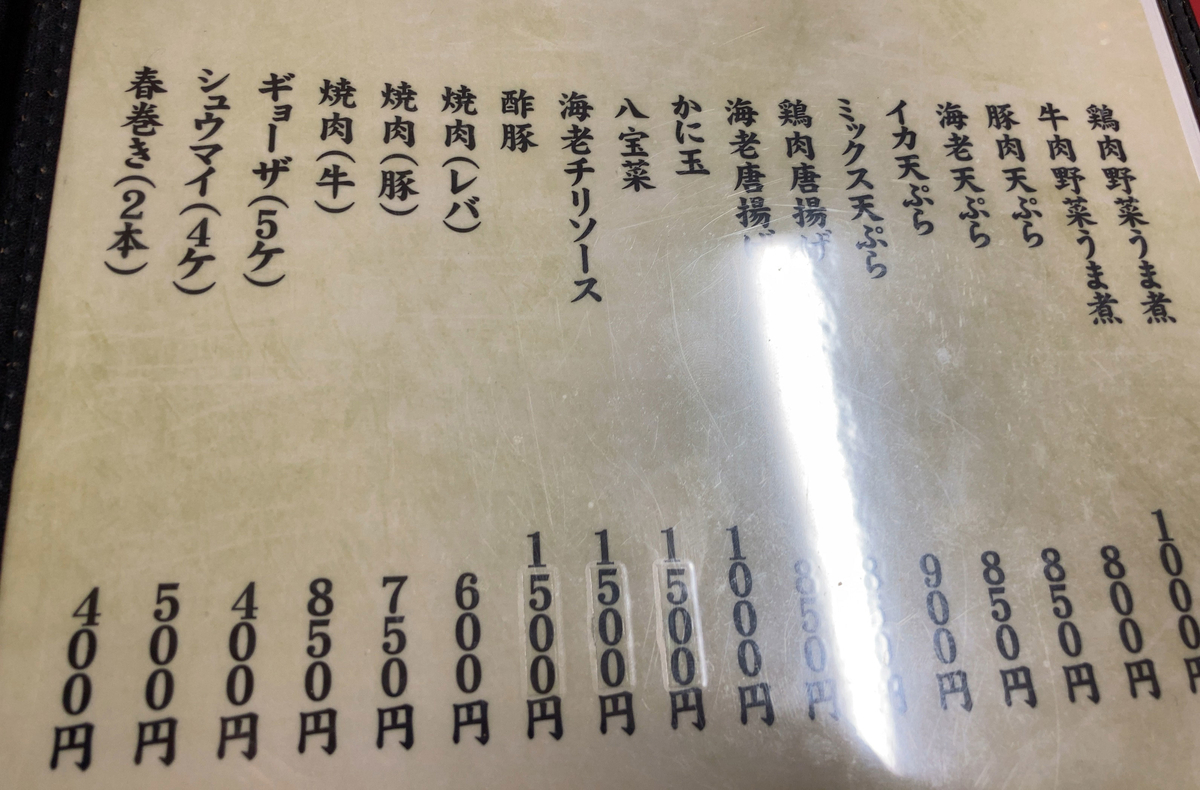 鶏肉野菜うま煮
牛肉野菜うま煮 1000円
豚肉天ぷら 800円
海老天ぷら 850円
イカ天ぷら 850円
ミックス天ぷら 900円
鶏肉唐揚げ 850円
海老唐揚げ 850円
かに玉 1000円
八宝菜 1500円
海老チリソース 1500円
酢豚 1500円
焼肉(レバ) 600円
焼肉(豚) 750円
焼肉(牛) 850円
ギョーザ(5ケ) 400円
シュウマイ(4ケ) 500円
春巻き(2本) 400円